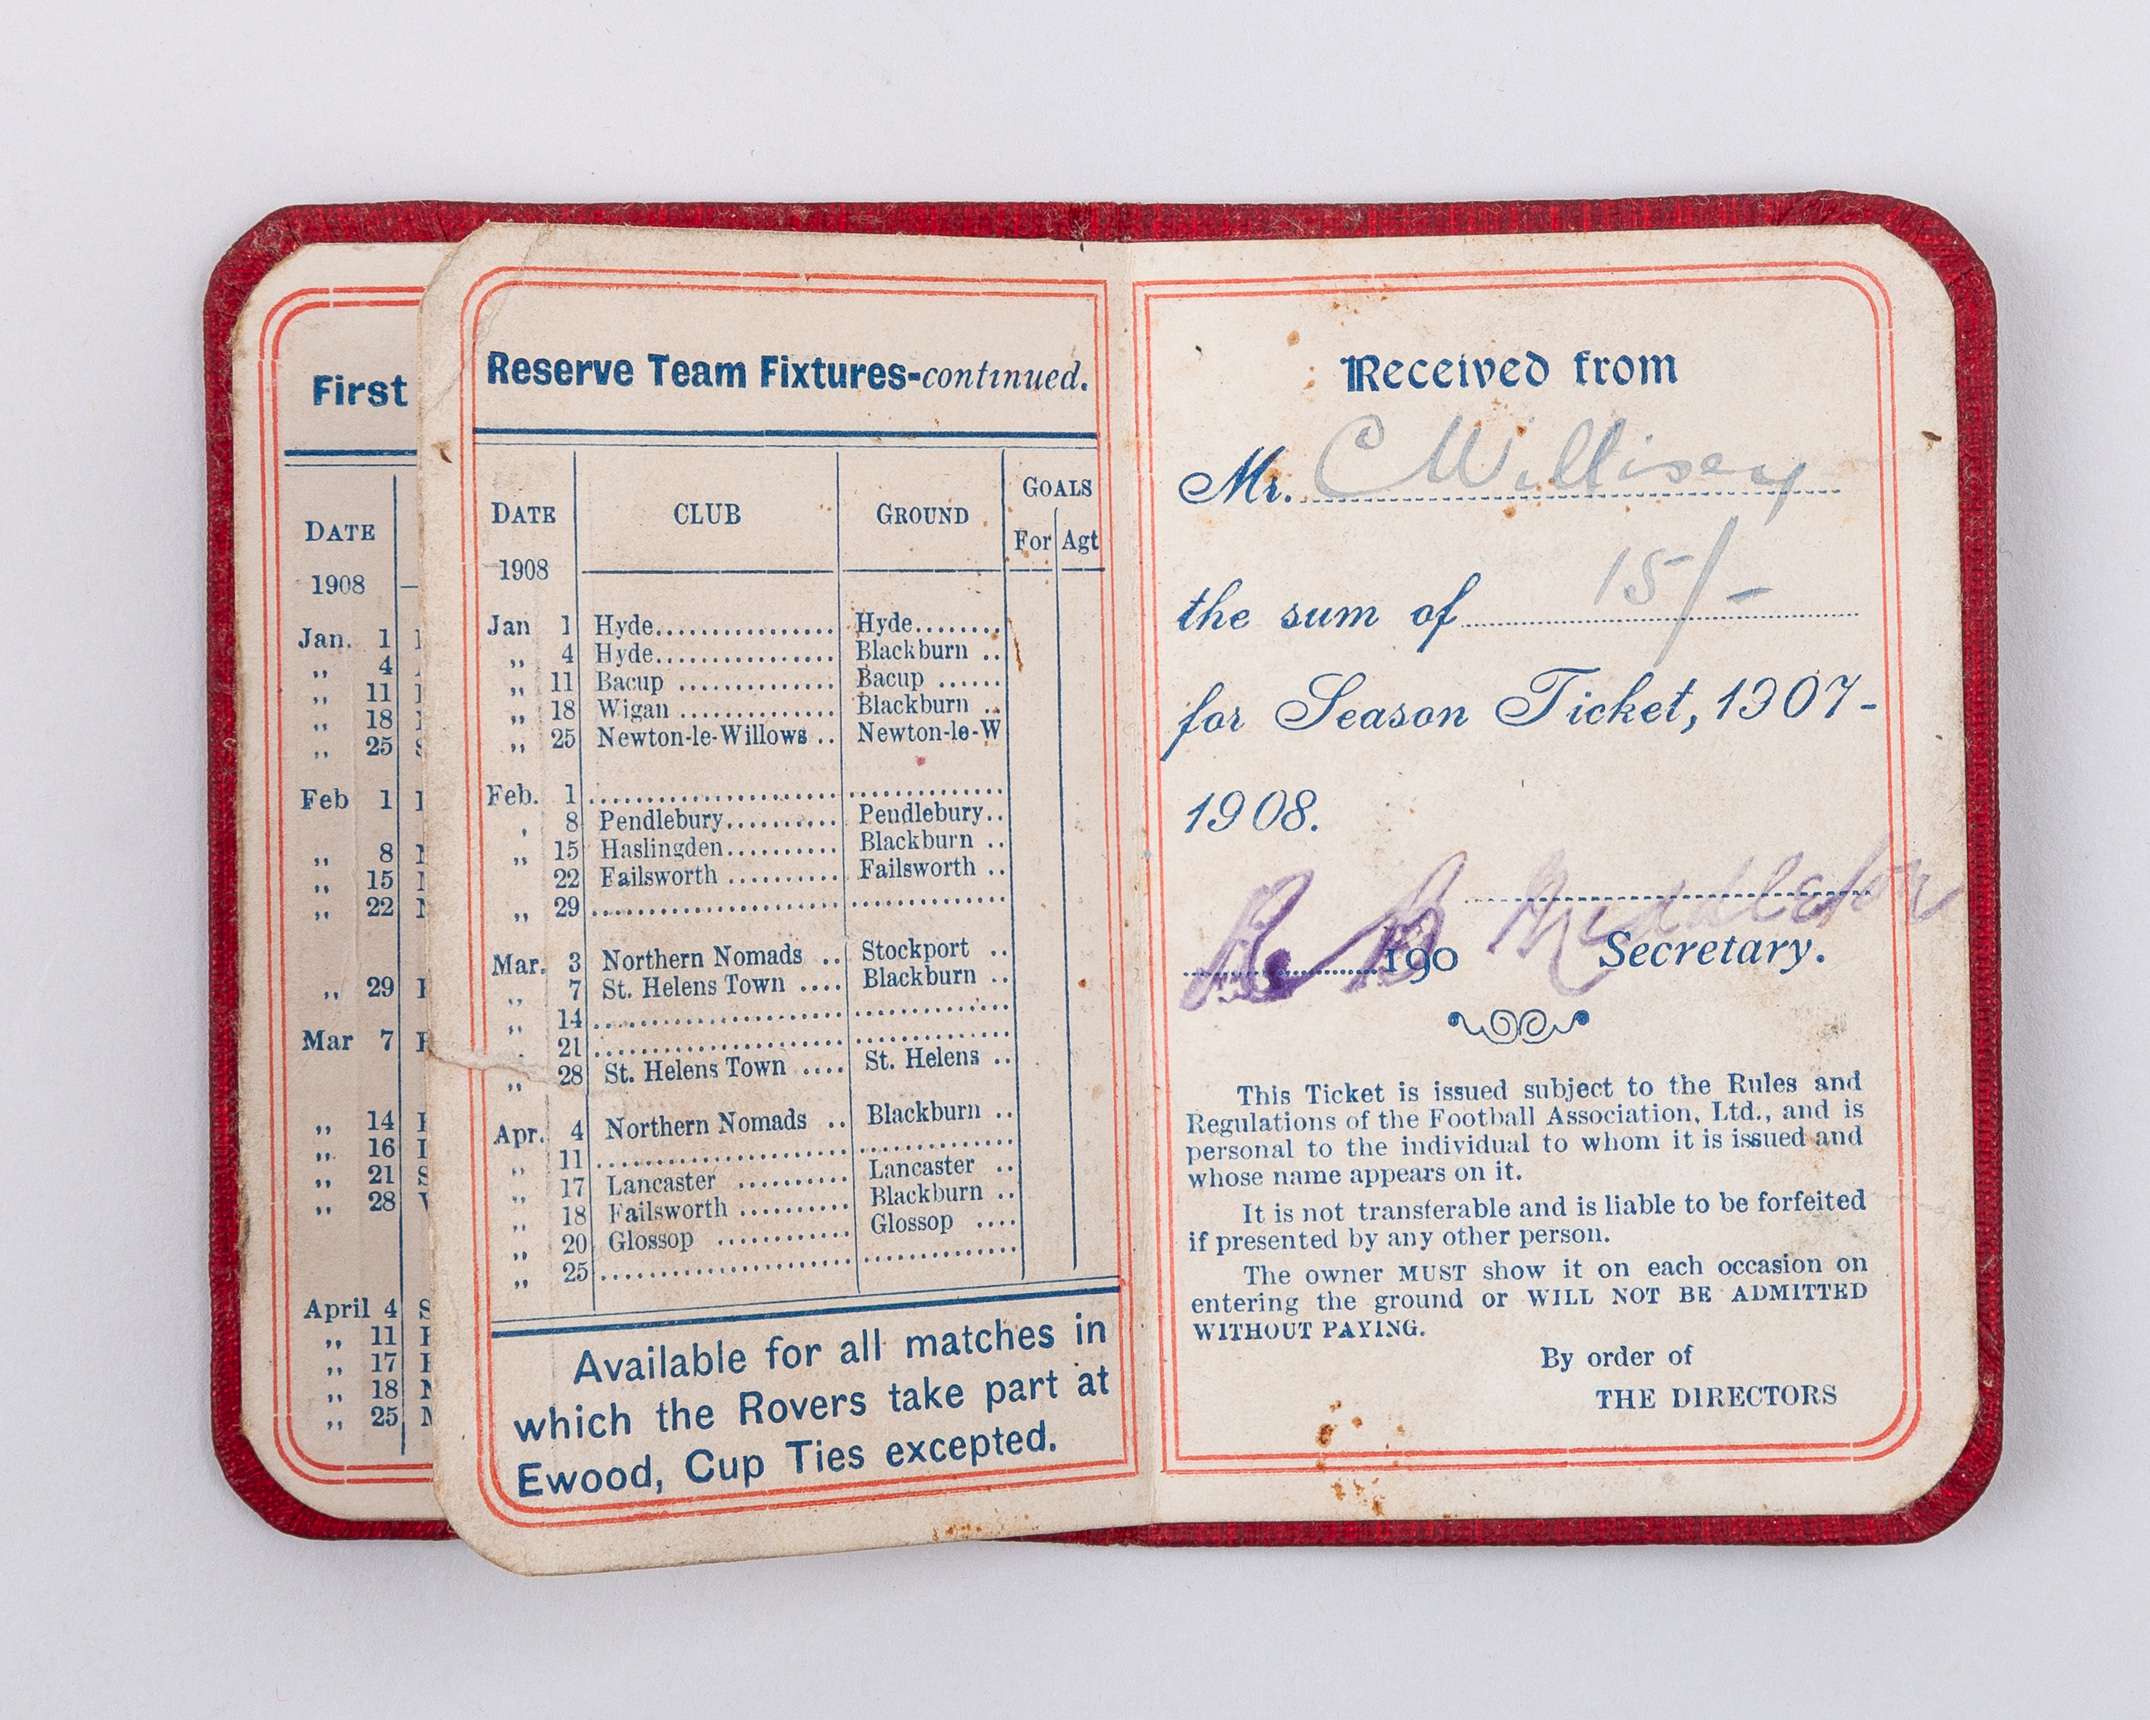 First
DATE
1908
Jan. 1
,, 4
,, 11
,, 18
,, 25
Feb 1
,, 8
,, 15
,, 22
,, 29
Mar 7
,, 14
,, 16
,, 21
,, 28
April 4
,, 11
,, 17
,, 18
,, 25
Reserve Team Fixtures-continued.
DATE CLUB GROUND GOALS
For Agt
1908
Jan 1 Hyde................ Hyde........
,, 4 Hyde................ Blackburn ..
,, 11 Bacup .............. Bacup ......
,, 18 Wigan .............. Blackburn ..
,, 25 Newton-le-Willows .. Newton-le-W
Feb. 1 ...................... ..............
, 8 Pendlebury.......... Pendlebury..
,, 15 Haslingden.......... Blackburn ..
22 Failsworth .......... Failsworth ..
,, 29 ...................... ..............
Mar. 3 Northern Nomads .. Stockport ..
,, 7 St. Helens Town .... Blackburn ..
,, 14 ...................... ..............
. 21 ...................... ..............
,, 28 St. Helens Town .... St. Helens ..
Apr. 4 Northern Nomads .. Blackburn ..
,, 11 ...................... ..............
,, 17 Lancaster .......... Lancaster ..
,, 18 Failsworth .......... Blackburn ..
,, 20 Glossop ............ Glossop ....
,, 25 ...................... ..............
Available for all matches in
which the Rovers take part at
Ewood, Cup Ties excepted.
Received from
Mr. C Willisey
the sum of 15/-
for Season Ticket, 1907-
1908.
R B Middleton
190 Secretary.
This Ticket is issued subject to the Rules and
Regulations of the Football Association, Ltd., and is
personal to the individual to whom it is issued and
whose name appears on it.
It is not transferable and is liable to be forfeited
if presented by any other person.
The owner MUST show it on each occasion on
entering the ground or WILL NOT BE ADMITTED
WITHOUT PAYING.
By order of
THE DIRECTORS